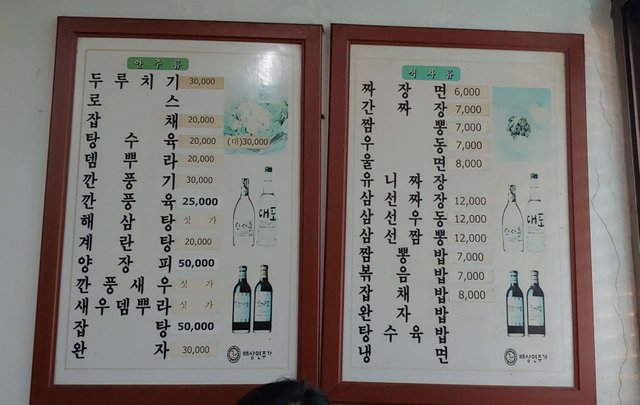 안주류
두루치기 30,000
로스
잡채 20,000
탕수육 20,000 (대)30,000
뎀뿌라 20,000
깐풍기 30,000
깐풍육 25,000
해삼탕 싯가
계란탕 20,000
양장피 50,000
깐풍새우 싯가
새우뎀뿌라 싯가
잡탕 50,000
완자 30,000
산사춘 대포
배상면주가
식사류
짜장면 6,000
간짜장 7,000
짬뽕 7,000
우동 7,000
울면 8,000
유니짜장
삼선짜장 12,000
삼선우동 12,000
삼선짬뽕 12,000
짬뽕밥 7,000
볶음밥 7,000
잡채밥 8,000
완자밥
탕수육밥
냉면
산사춘 대포
배상면주가